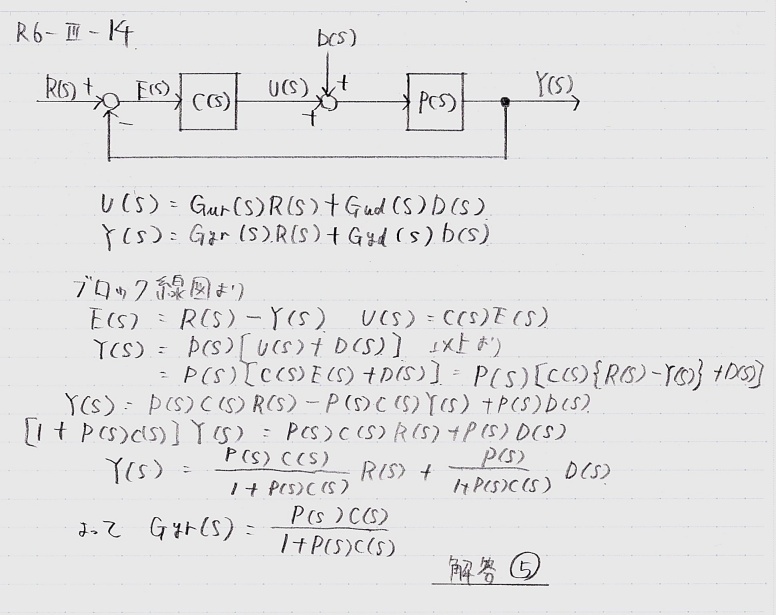 R6-Ⅲ-14
D(S)
R(S) + E(S) C(S) U(S) + P(S) Y(S)
− +
U(S) = Gur(S)R(S) + Gud(S)D(S)
Y(S) = Gyr(S)R(S) + Gyd(S)D(S)
ブロック線図より
E(S) = R(S) − Y(S) U(S) = C(S)E(S)
Y(S) = P(S)[U(S) + D(S)] 以上より
= P(S)[C(S)E(S) + D(S)] = P(S)[C(S){R(S) − Y(S)} + D(S)]
Y(S) = P(S)C(S)R(S) − P(S)C(S)Y(S) + P(S)D(S)
[1 + P(S)C(S)]Y(S) = P(S)C(S)R(S) + P(S)D(S)
Y(S) = P(S)C(S) / 1 + P(S)C(S) R(S) + P(S) / 1 + P(S)C(S) D(S)
よって Gyr(S) = P(S)C(S) / 1 + P(S)C(S)
解答 ⑤